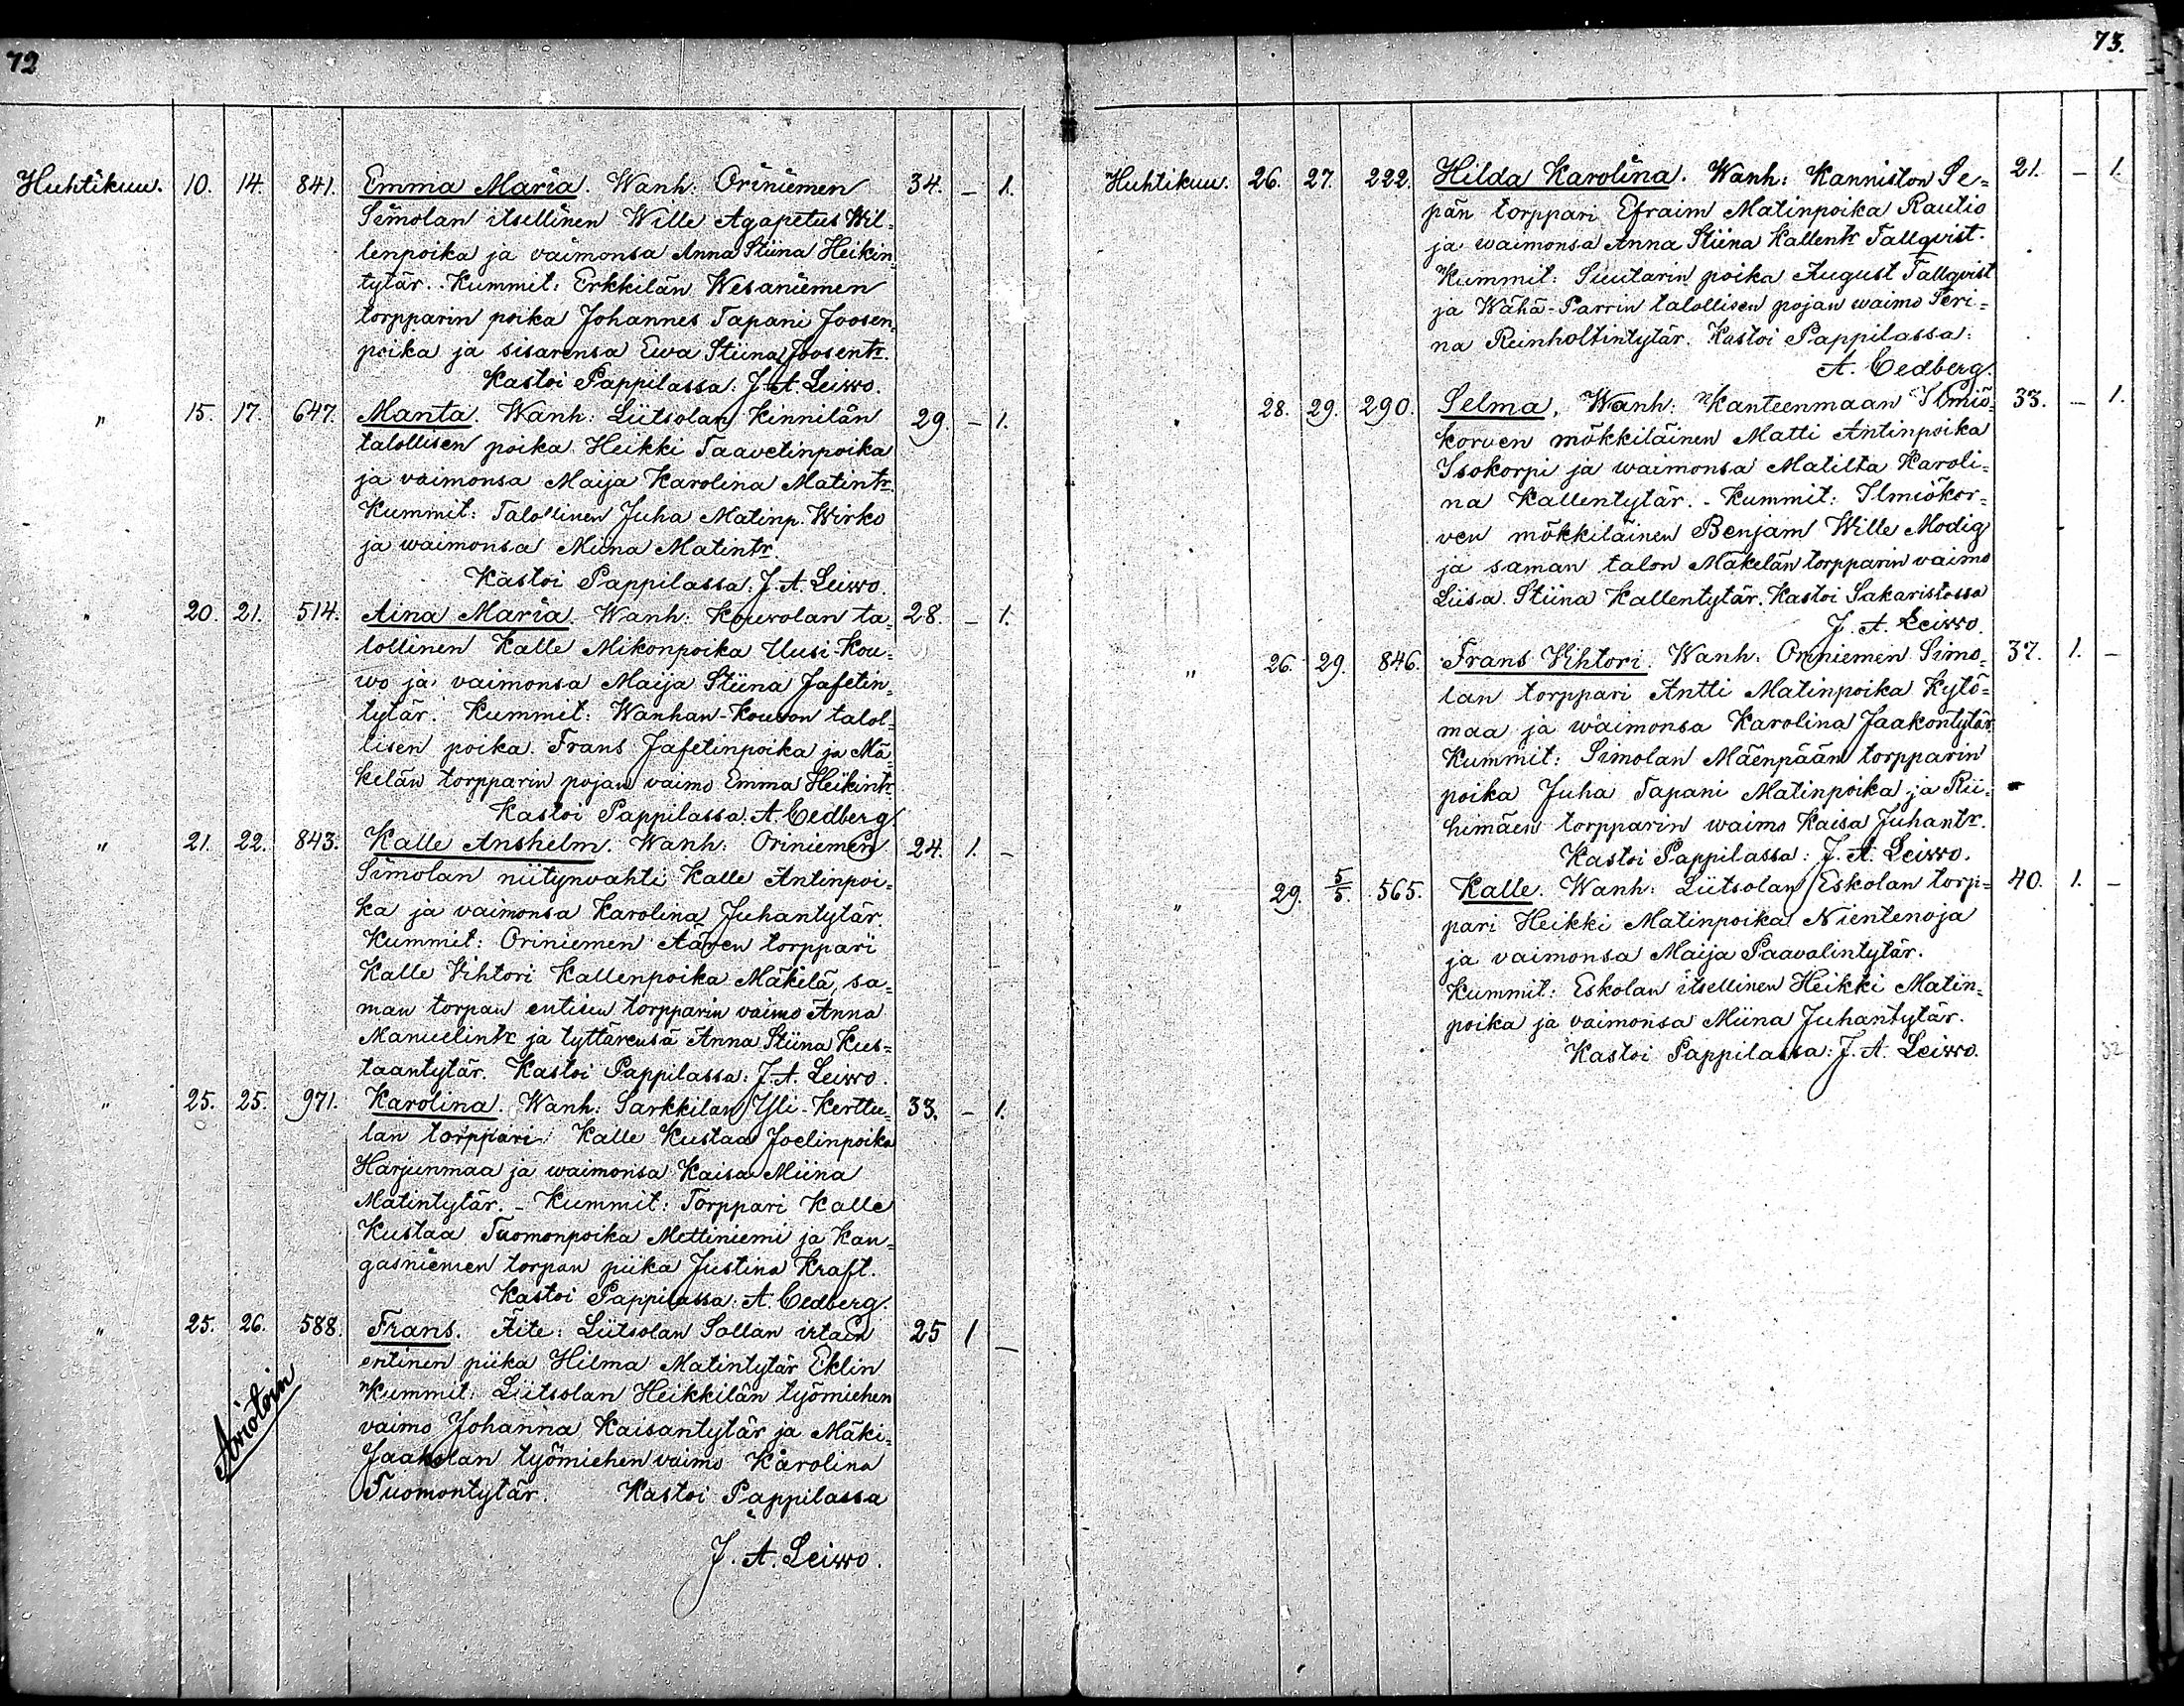 72
Huhtikuu. 10. 14. 841. Emma Maria. Wanh: Oriniemen 34. – 1.
Simolan itsellinen Wille Agapetus Wil=
lenpoika ja vaimonsa Anna Stiina Heikin=
tytär. - Kummit: Erkkilän Wesaniemen
torpparin poika Johannes Tapani Joosen=
poika ja sisarensa Ewa Stiina Joosentr.
Kastoi Pappilassa: J. A. Leiwo.
" 15. 17. 647. Manta. Wanh: Liitsolan Kinnilän 29. – 1.
talollisen poika Heikki Taavetinpoika
ja vaimonsa Maija Karolina Matintr.
Kummit: Talollinen Juha Matinp. Wirko
ja waimonsa Miina Matintr.
Kastoi Pappilassa: J. A. Leiwo.
" 20. 21. 514. Aina Maria. Wanh: Kouvolan ta= 28. – 1.
lollinen Kalle Mikonpoika Uusi-Kou=
wo ja vaimonsa Maija Stiina Jafetin=
tytär. Kummit: Wanhan-Kouvon talol=
lisen poika Frans Jafetinpoika ja Mä=
kelän torpparin pojan vaimo Emma Heikintr.
Kastoi Pappilassa: A. Cedberg.
" 21. 22. 843. Kalle Anshelm. Wanh: Oriniemen 24. 1. –
Simolan niitynvahti Kalle Antinpoi=
ka ja vaimonsa Karolina Juhantytär.
Kummit: Oriniemen Äären torppari
Kalle Vihtori Kallenpoika Mäkilä, sa=
man torpan entisen torpparin vaimo Anna
Manuelintr. ja tyttärensä Anna Stiina Kus=
taantytär. Kastoi Pappilassa: J. A. Leiwo.
" 25. 25. 971. Karolina. Wanh: Sarkkilan Yli-Kerttu= 33. – 1.
lan torppari Kalle Kustaa Joelinpoika
Harjunmaa ja waimonsa Kaisa Miina
Matintytär. - Kummit: Torppari Kalle
Kustaa Tuomonpoika Mettiniemi ja Kan=
gasniemen torpan piika Justina Kraft.
Kastoi Pappilassa: A. Cedberg.
" 25. 26. 588. Frans. Äite: Liitsolan Sallan irtain 25 1 –
entinen piika Hilma Matintytär Eklin
Aviotoin
Kummit: Liitsolan Heikkilän työmiehen
vaimo Johanna Kaisantytär ja Mäki-
Jaakolan työmiehen vaimo Karolina
Tuomontytär. Kastoi Pappilassa
J. A. Leiwo.
73.
Huhtikuu. 26. 27. 222. Hilda Karolina. Wanh: Kanniston Se= 21. – 1.
pän torppari Efraim Matinpoika Rautio
ja waimonsa Anna Stiina Kallentr Tallqvist.
Kummit: Suutarin poika August Tallqvist
ja Wähä-Parrin talollisen pojan waimo Seri=
na Reinholtintytär. Kastoi Pappilassa:
A. Cedberg.
" 28. 29. 290. Selma. Wanh: Kanteenmaan Ilmiö= 33. – 1.
korven mökkiläinen Matti Antinpoika
Isokorpi ja waimonsa Matilta Karoli=
na Kallentytär. - Kummit: Ilmiökor=
ven mökkiläinen Benjam Wille Modig
ja saman talon Mäkelän torpparin vaimo
Liisa Stiina Kallentytär. Kastoi Sakaristossa
J. A. Leiwo.
" 26. 29. 846. Frans Vihtori. Wanh: Oriniemen Simo= 37. 1. –
lan torppari Antti Matinpoika Kytö=
maa ja waimonsa Karolina Jaakontytär.
Kummit: Simolan Mäenpään torpparin
poika Juha Tapani Matinpoika ja Rii=
himäen torpparin waimo Kaisa Juhantr.
Kastoi Pappilassa: J. A. Leiwo.
" 29. 5/5. 565. Kalle. Wanh: Liitsolan Eskolan torp= 40. 1. –
pari Heikki Matinpoika Nientenoja
ja vaimonsa Maija Paavalintytär.
Kummit: Eskolan itsellinen Heikki Matin=
poika ja vaimonsa Miina Juhantytär.
Kastoi Pappilassa: J. A. Leiwo.
32